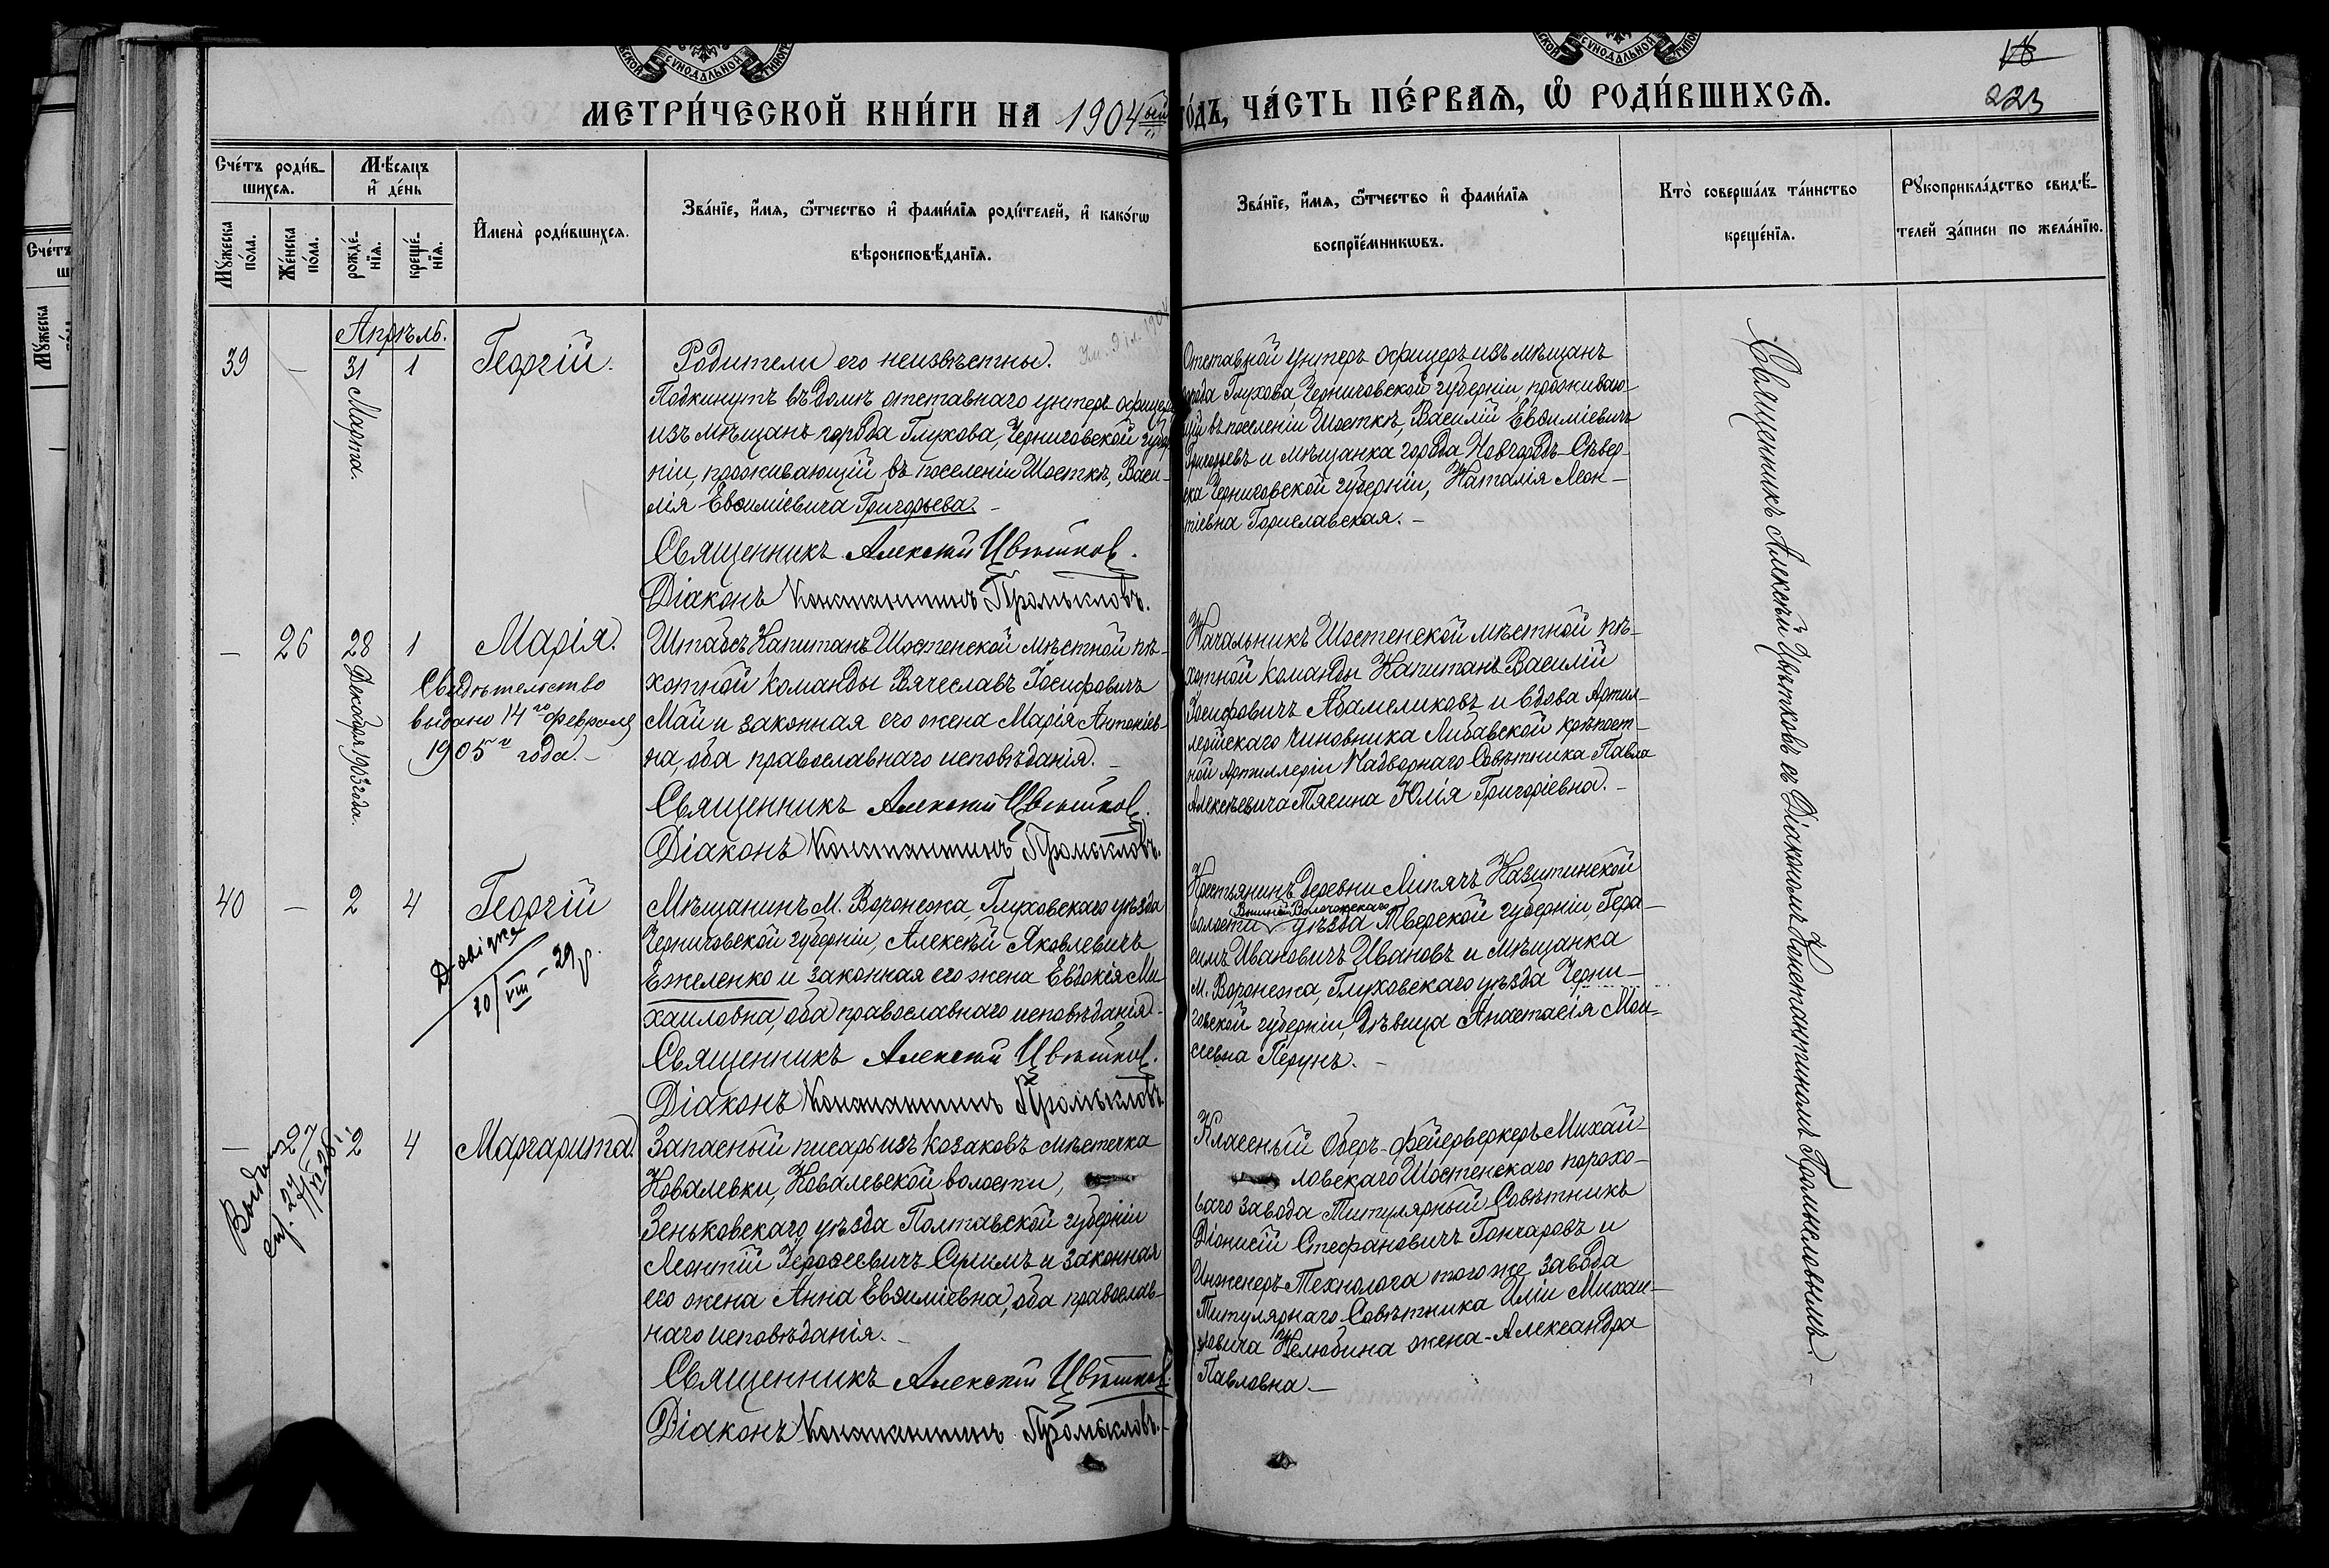 МЕТРИ́ЧЕСКОЙ КНИ́ГИ НА 1904ый
го́дъ, ЧА́СТЬ ПЕ́РВАѦ, Ѡ҆ РОДИ́ВШИХСѦ.
223
Сче́тъ роди́в-
шихся.
Мѣ́сяцъ
и҆ де́нь
Мꙋжеска
по́ла.
Же́нска
по́ла.
рожде́-
нїя.
креще́-
нїя.
И҆мена̀ роди́вшихся.
Зва́нїе, и҆́мя, ѻ҆́тчество и҆ фами́лїя роди́телей, и҆ како́гѡ
вѣроисповѣ́данїя.
Зва́нїе, и҆́мя, ѻ҆́тчество и҆ фами́лїя
воспрїе́мникѡвъ.
Кто̀ соверша́лъ та́инство
креще́нїя.
Рꙋкоприкла́дство свидѣ́-
телей за́писи по жела́нїю.
Апрѣль.
39 — 31 Марта. 1 Георгій.
Родители его неизвѣстны.
Подкинутъ въ домъ отставнаго унтеръ офицера
изъ мѣщанъ города Глухова, Черниговской губер-
ніи, проживающій въ поселеніи Шосткѣ, Васи-
лія Евѳиміевича Григорьева. –
Священникъ Алексѣй Цвѣтков.
Діаконъ Константинъ Промысловъ.
Отставной унтеръ офицеръ изъ мѣщанъ
города Глухова, Черниговской губерніи, проживаю-
щій въ поселеніи Шосткѣ, Василій Евѳиміевичъ
Григорьевъ и мѣщанка города Новгородъ-Сѣвер-
ска Черниговской губерніи, Наталія Леон-
тіевна Гориславская. –
— 26 28 Декабря 1903 года. 1 Марія.
Свидѣтельство
выдано 14го февраля
1905 г. года. –
Штабсъ Капитанъ Шостенской мѣстной пѣ-
хотной команды Вячеславъ Іосифовичъ
Май и законная его жена Марія Антоніев-
на, оба православнаго исповѣданія. –
Священникъ Алексѣй Цвѣтков.
Діаконъ Константинъ Промысловъ.
Начальникъ Шостенской мѣстной пѣ-
хотной команды Капитанъ Василій
Іосифовичъ Абамеликовъ и вдова Артил-
лерійскаго чиновника Либавской крѣпост-
ной Артиллеріи Надворнаго Совѣтника Павла
Алексѣевича Тясина Юлія Григоріевна. –
40 — 2 4 Георгій
Довідка
20/VIII – 29 р.
Мѣщанинъ М. Воронежа, Глуховскаго уѣзда
Черниговской губерніи, Алексѣй Яковлевичъ
Ежеленко и законная его жена Евдокія Ми-
хаиловна, оба православнаго исповѣданія. –
Священникъ Алексѣй Цвѣтков.
Діаконъ Константинъ Промысловъ
Крестьянинъ деревни Липячъ Казитинской
Вышне-Волочокскаго
волости уѣзда Тверской губерніи, Гера-
симъ Ивановичъ Ивановъ и мѣщанка
М. Воронежа, Глуховскаго уѣзда Черни-
говской губерніи, дѣвица Анастасія Мои-
сеевна Перунъ. –
— 27 2 4 Маргарита.
Запасный писарь изъ козаковъ мѣстечка
Ковалевки, Ковалевской волости,
Зеньковскаго уѣзда Полтавской губерніи
Леонтій Іероѳеевичъ Сулимъ и законная
его жена Анна Евѳиміевна, оба православ-
наго исповѣданія. –
Священникъ Алексѣй Цвѣтков.
Діаконъ Константинъ Промысловъ.
Классный Оберъ-фейерверкеръ Михай-
ловскаго Шостенскаго порохо-
ваго завода Титулярный Совѣтникъ
Діонисій Стефановичъ Гончаровъ и
Инженеръ-Технолога того же завода
Титулярнаго Совѣтника Иліи Михаи-
ловича Нелюбина жена-Александра
Павловна. –
Священникъ Алексѣй Цвѣтковъ съ Діакономъ Константиномъ Промысловымъ. –